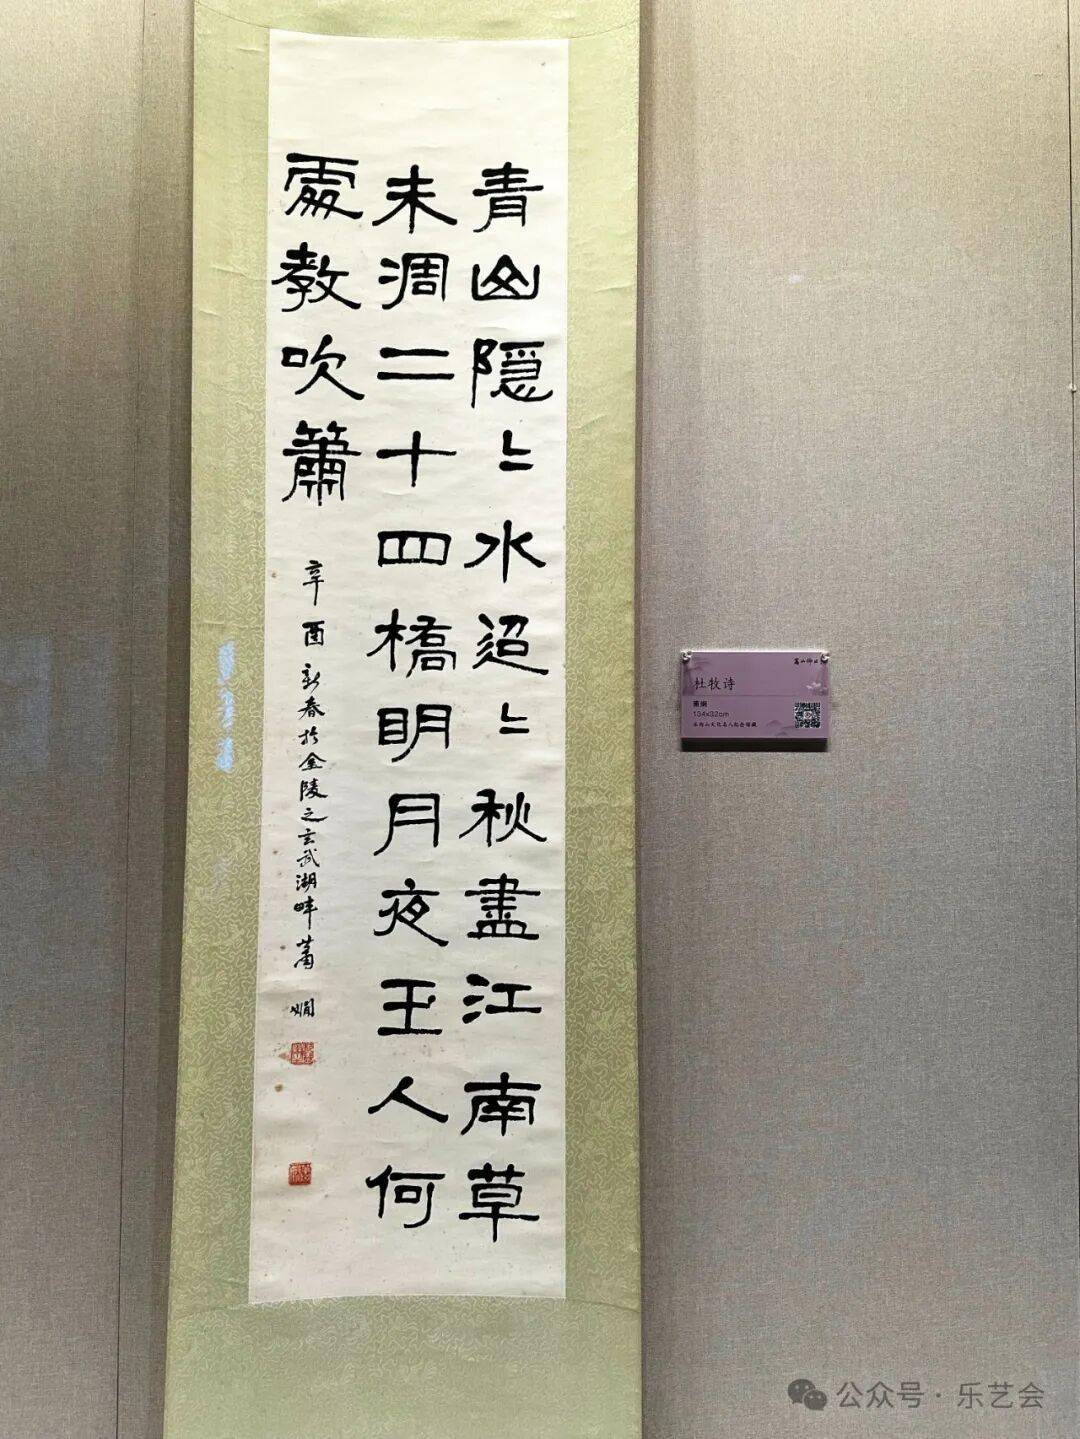 青山隱〻水迢〻秋盡江南草
未凋二十四橋明月夜玉人何
處教吹簫
辛酉新春於金陵之玄武湖畔蕭嫻
杜牧诗
萧娴
134x32cm
公众号·乐艺会